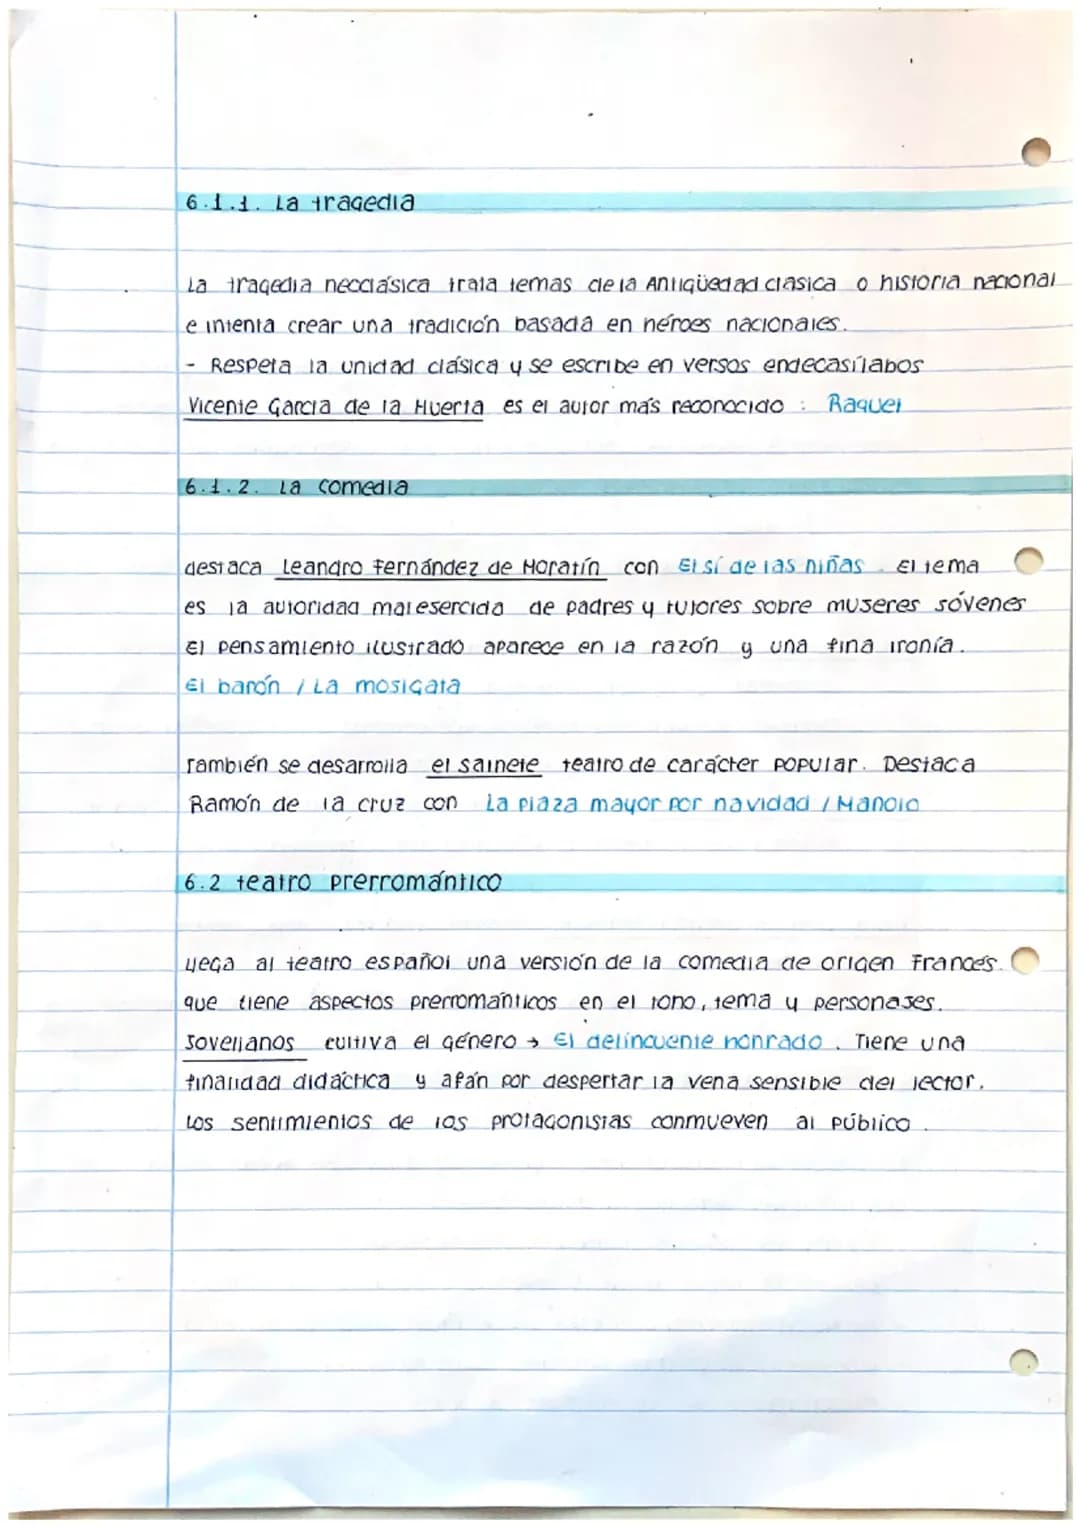 6.1.1. La tragedia
La tragedia neoclásica trata temas de la Antigüedad clásica o historia nacional
e intenta crear una tradición basada en héroes nacionales.
- Respeta la unidad clásica y se escribe en versos endecasílabos
Vicente García de la Huerta es el autor más reconocido : Raquel
6.1.2. La comedia
destaca Leandro Fernández de Moratín con El sí de las niñas. El tema
es la autoridad mal esercida de padres y tutores sobre mujeres jóvenes
El pensamiento ilustrado aparece en la razón y una fina ironía.
El barón / La mosigata
También se desarrolla el sainete teatro de carácter popular. Destaca
Ramón de la cruz con La Plaza mayor por navidad / Manolo
6.2 teatro prerromántico
Llega al teatro español una versión de la comedia de origen Francés.
que tiene aspectos prerrománticos en el tono, tema y personajes.
Jovellanos cultiva el género → El delincuente honrado. Tiene una
finalidad didáctica y afán por despertar la vena sensible del lector.
Los sentimientos de los protagonistas conmueven al público.